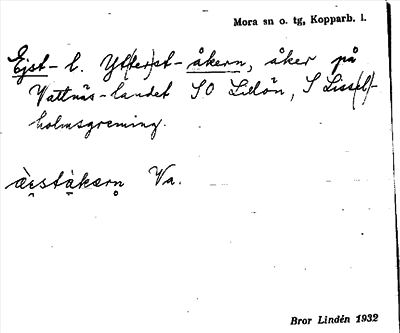 Mora sn o. tg, Kopparb. l.
Ejst- l. Yt(ter)st-åkern, åker på
Vattnäs-landet SO Lillön, S Liss(el)-
holmsgrening.
æ̀i̯stàkæṛn̥ Va.
Bror Lindén 1932